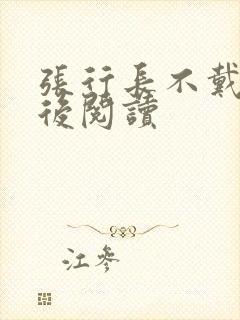 張行長不戴
後閱讀
江參